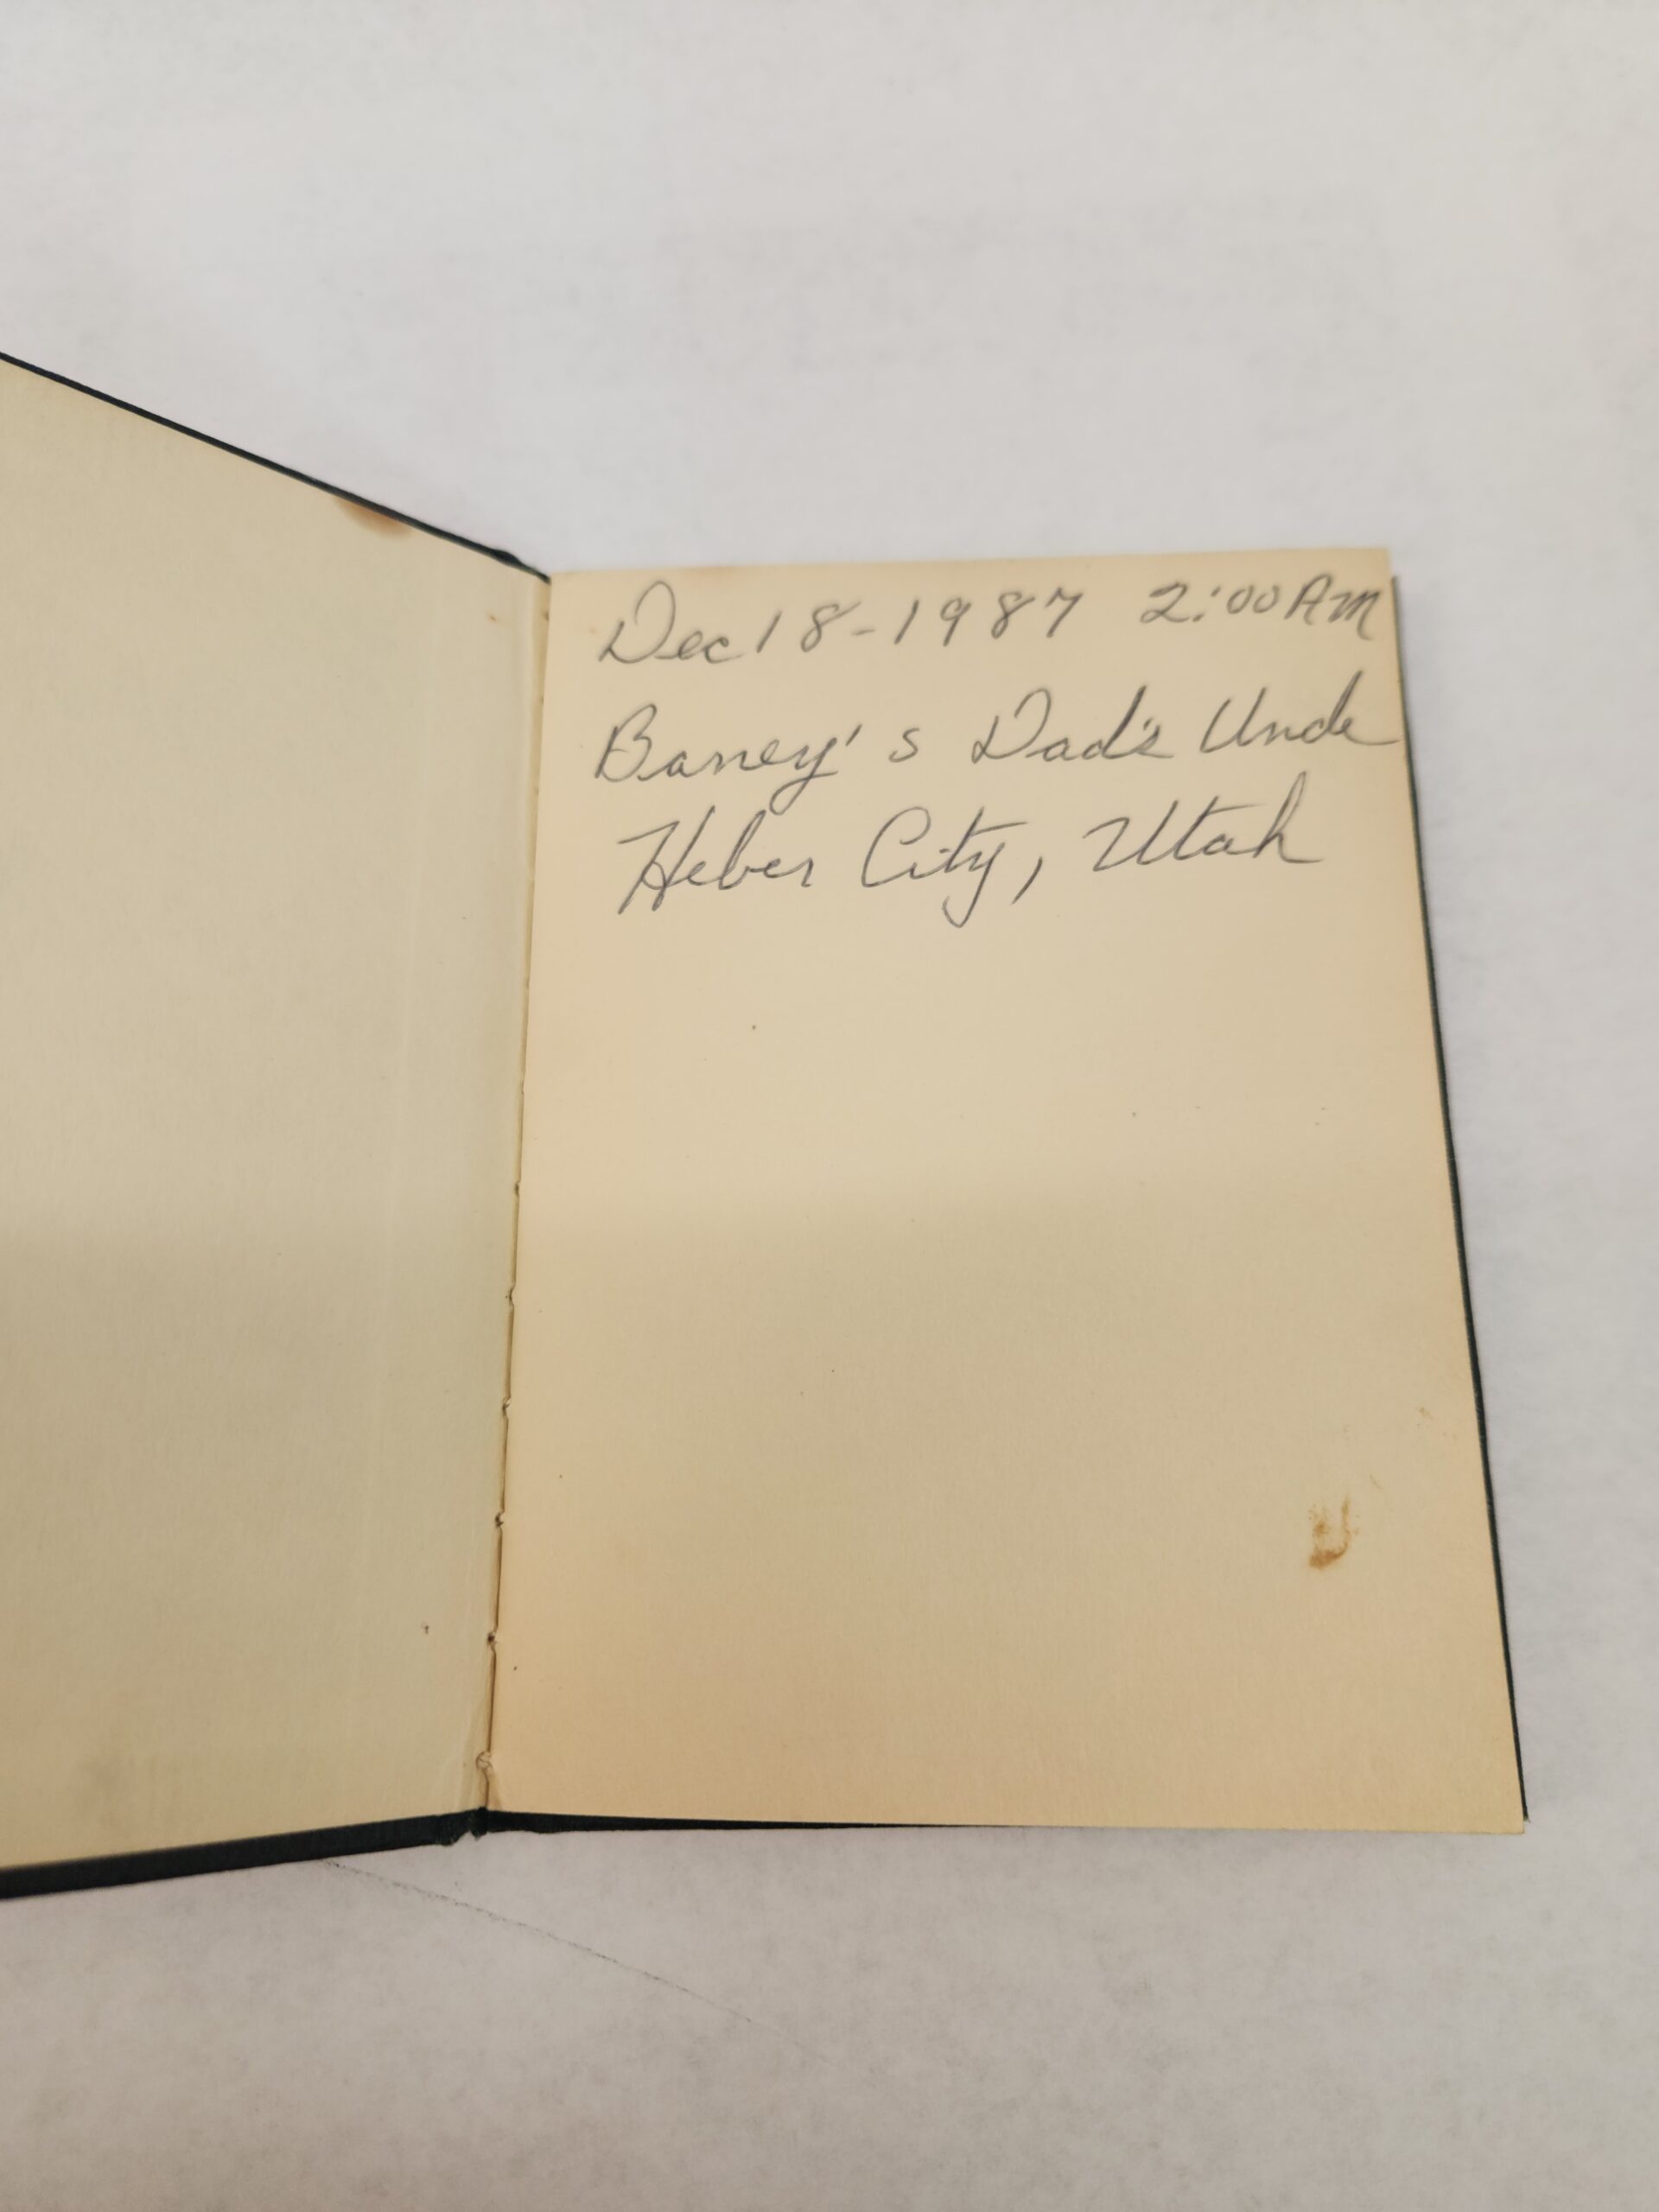 Dec 18-1987 2:00 AM
Barney's Dad's Uncle
Heber City, Utah